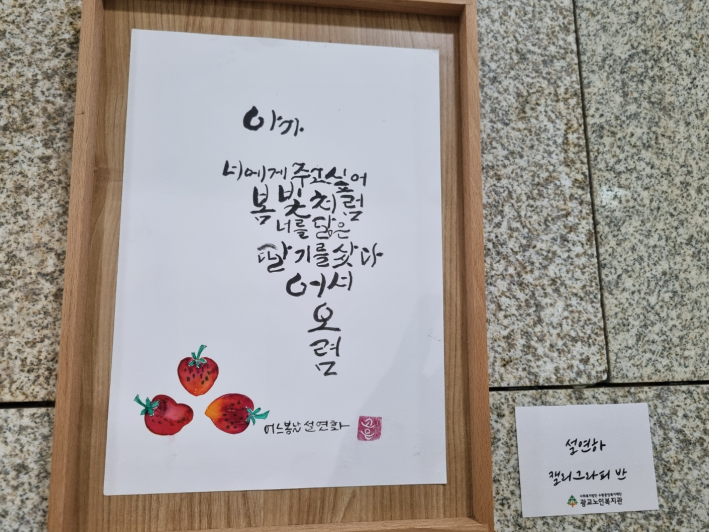 아가
너에게 주고싶어
봄빛처럼
너를 닮은
딸기를 샀다
어서
오
렴
어느봄날 설연화
고은
설연하
캘리그라피 반
사회복지법인 수원중앙복지재단
광교노인복지관